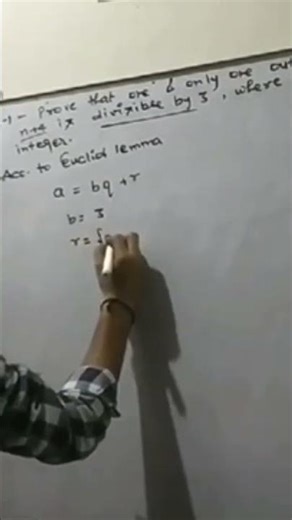 - Prove that one & only one out
n+4 is divisible by 3, where
integer.
Acc. to Euclid lemma
a = bq + r
b = 3
r = {